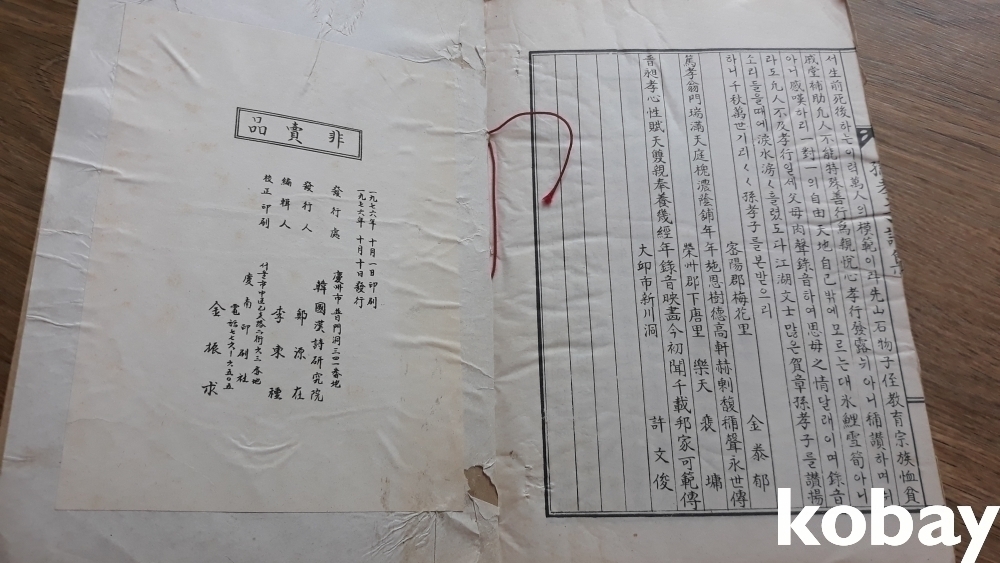 서生前死後하는이러萬人의模範이라先山石物子侄教育宗族恤貧
戚堂補助九人不能特殊善行爲親忱心孝行發露뉘아니稱讚하며뉘
아니感嘆하리 對一의自由天地自己밖에모르는대氷鯉雪筍아니
라도九人不及孝行일세父母肉聲錄音하여思母之情달래이며錄音
소리들을때에淚水滂〱흘렸도다江湖文士많은賀章孫孝子를讚揚
하니千秋萬世기리〱孫孝子를본받으리
密陽郡梅花里 金泰郁
篤孝翁門瑞滿天庭槐濃蔭鋪年年施恩樹德高軒赫剩馥穪聲永世傳
榮州郡下唐里 樂天 裴墉
晋昶孝心性賦天雙親奉養幾經年錄音映畵今初聞千載邦家可範傳
大邱市新川洞 許文俊
非賣品
一九七六年 十月一日印刷
一九七六年 十月十日發行
發行處 慶州市普門洞三四一番地
韓國漢詩研究院
發行人 鄭源在
編輯人 李東種
校正印刷 서울市中區乙支路二街六三番地
慶南印刷社
電話七七六六五〇五
金振求
kobay